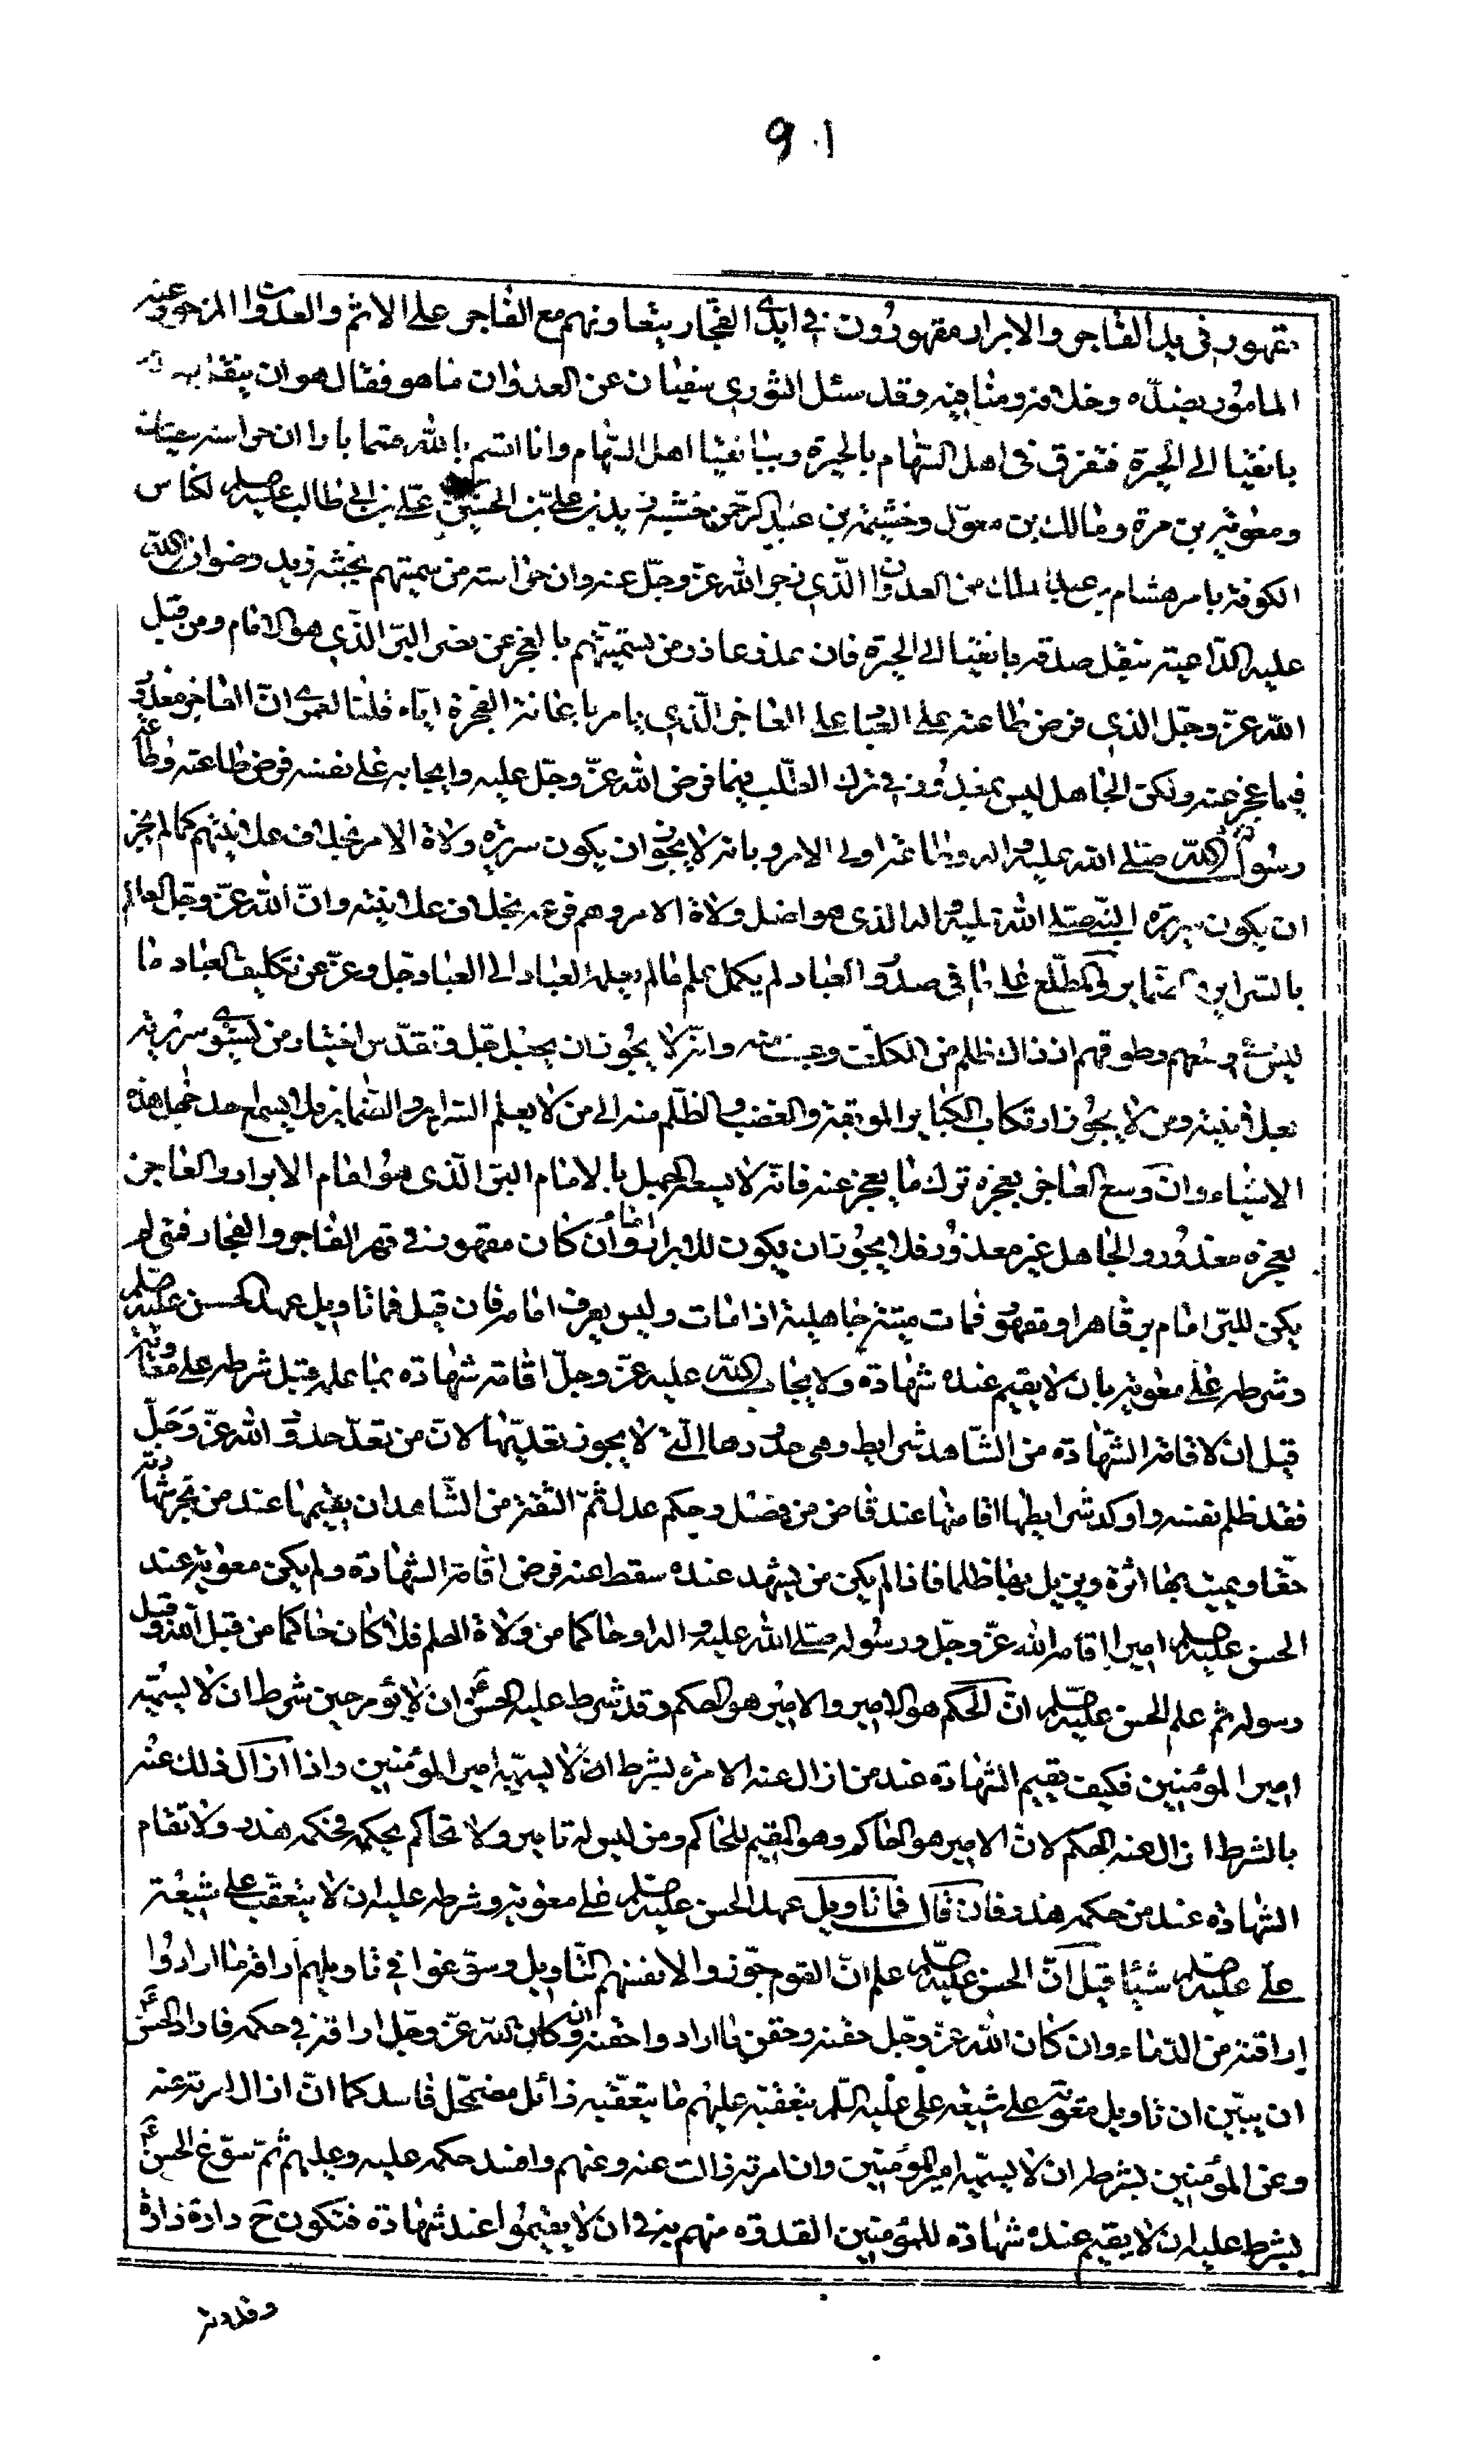 ٩٠١
مقهور في يد الفاجر والابرار مقهورون في ايدي الفجار بتعاونهم مع الفاجر على الاثم والعدوان المزجور عنه
المامور بضده وخلافه ومنافيه وقد سئل الثوري سفيان عن العدوان ما هو فقال هو ان ينقل صدقة
بانقيا الى الحيرة فتفرق في اهل السهام بالحيرة وببانقيا اهل السهام وانا اقسم بالله قسما بارا ان حراسة سفيان
ومعوية بن مرة ومالك بن معول وخيثمة بن عبد الرحمن خشبة زيد بن علي بن الحسين بن علي بن ابي طالب عليه السلام لكناس
الكوفة بامر هشام بن عبد الملك من العدوان الذي زجر الله عز وجل عنه وان حراسة من سميتهم بخشبة زيد رضوان الله
عليه الداعية بنقل صدقة بانقيا الى الحيرة فان عذر عاذر من سميتهم بالعجز عن نصر البر الذي هو الامام من قبل
الله عز وجل الذي فرض طاعته على العباد على الفاجر الذي يامر باعانة الفجرة اياه قلنا لعمري ان العاجز معذور
فيما عجز عنه ولكن الجاهل ليس بمعذور في ترك الطلب فيما فرض الله عز وجل عليه وايجابه على نفسه فرض طاعته وطاعة
رسول الله صلى الله عليه واله وطاعة اولى الامر وبانه لا يجوز ان يكون سريرة ولاة الامر بخلاف علانيتهم كما لم يجز
ان يكون سريرة النبي صلى الله عليه واله الذي هو اصل ولاة الامر وهم فرعه بخلاف علانيته وان الله عز وجل العالم
بالسراير والضماير والمطلع على ما في صدور العباد لم يكل علم ما لم يعلمه العباد الى العباد وجل وعز عن تكليف العباد ما
ليس في وسعهم وطوقهم اذ ذاك ظلم من المكلف وعبث منه وانه لا يجوز ان يجعل جل وتقدس اختيار من يستوي سريرته
بعلانيته ومن لا يجوز ارتكاب الكباير الموبقة والغضب والظلم منه الى من لا يعلم السراير والضماير فلا يسع احد جهل هذه
الاشياء وان وسع العاجز بعجزه ترك ما يعجز عنه فانه لا يسعه الجهل بالامام البر الذي هو امام الابرار والعاجز
بعجزه معذور والجاهل غير معذور فلا يجوز ان يكون للابرار امام وان كان مقهورا في قهر الفاجر والفجار فمتى لم
يكن للبر امام بر قاهر او مقهور فمات ميتة جاهلية اذا مات وليس يعرف امامه فان قيل فما تاويل عهد الحسن عليه السلام
وشرطه على معوية بان لا يقيم عنده شهادة ولا يجاب الله عليه عز وجل اقامة شهادة بما علمه قبل شرطه على معوية
قيل ان لاقامة الشهادة من الشاهد شرايط وهي حدودها التي لا يجوز تعديها لان من تعد حدود الله عز وجل
فقد ظلم نفسه واوكد شرايطها اقامتها عند قاض من فصل وحكم عدل ثم الثقة من الشاهد ان يقيمها عند من تجر شهادته
حقا ويميت بها اثرة ويزيل بها ظلما فاذا لم يكن من يشهد عنده سقط عنه فرض اقامة الشهادة ولم يكن معوية عند
الحسن عليه السلام اميرا اقامه الله عز وجل ورسوله صلى الله عليه واله او حاكما من ولاة الحكم فلو كان حاكما من قبل الله وقبل
رسوله ثم علم الحسن عليه السلام ان الحكم هو الامير والامير هو الحكم وقد شرط عليه الحسن ان لا يؤمر حين شرط ان لا يسميه
امير المؤمنين فكيف يقيم الشهادة عند من ازال عنه الامرة بشرط ان لا يسميه امير المؤمنين واذا ازال ذلك عنه
بالشرط ازال عنه الحكم لان الامير هو الحاكم وهو المقيم للحاكم ومن ليس له تامير ولا تحاكم بحكم فحكمه هذر ولا تقام
الشهادة عند من حكمه هذر فان قال فما تاويل عهد الحسن عليه السلام على معوية وشرطه عليه ان لا يتعقب على شيعة
علي عليه السلام شيئا قيل ان الحسن عليه السلام علم ان القوم جوزوا لانفسهم التاويل وسوغوا في تاويلهم اراقة ما ارادوا
اراقته من الدماء وان كان الله عز وجل حقنه وحقن ما ارادوا حقنه وان كان الله عز وجل اراقته في حكمه فاراد الحسن
ان يبين ان تاويل معوية على شيعة علي عليه السلم بتعقبه عليهم ما يتعقبه زائل مضمحل فاسد كما انه ازال امرته عنه
وعن المؤمنين بشرطه ان لا يسميه امير المؤمنين وان امرته زالت عنه وعنهم وافسد حكمه عليه وعليهم ثم سوغ الحسن
بشرطه عليه ان لا يقيم عنده شهادة للمؤمنين القدوة منهم به في ان لا يقيموا عنده شهادة فتكون ح دارة زارة
وقدوته